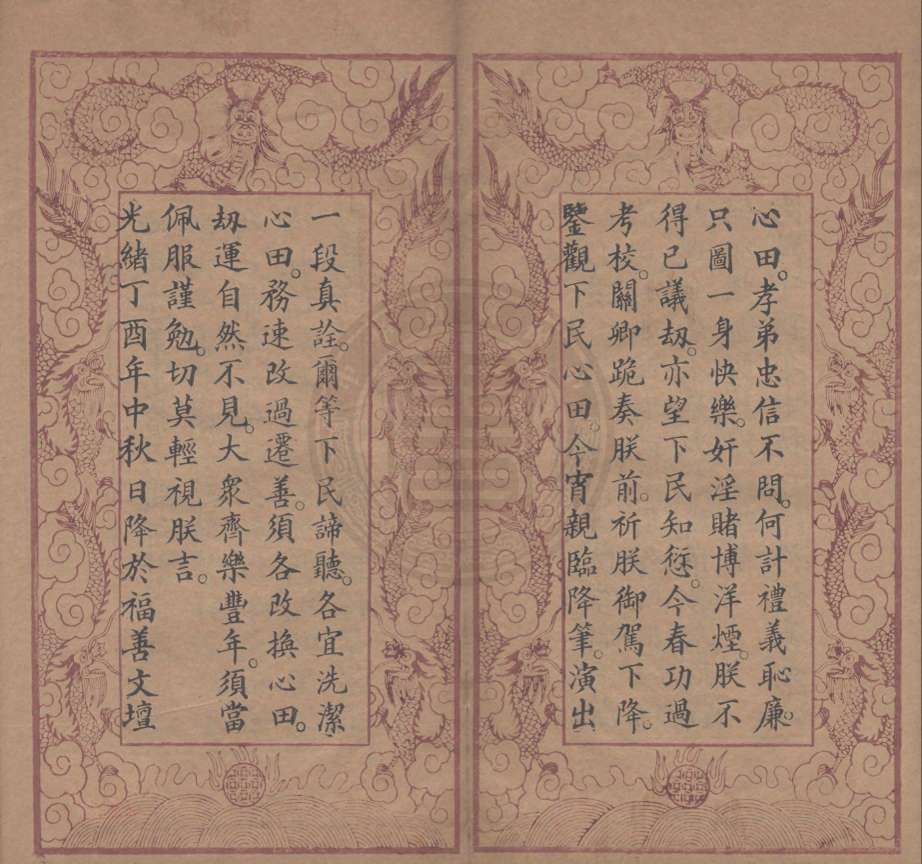 心田。孝弟忠信不問。何計禮義恥廉。
只圖一身快樂。奸淫賭博洋煙。朕不
得已議刼。亦望下民知愆。今春功過
考校。關卿跪奏朕前。祈朕御駕下降。
鑒觀下民心田。今宵親臨降筆。演出
一段真詮。爾等下民諦聽。各宜洗潔
心田。務速改過遷善。須各改換心田。
刼運自然不見。大衆齊樂豐年。須當
佩服謹勉。切莫輕視朕言。
光緒丁酉年中秋日降於福善文壇